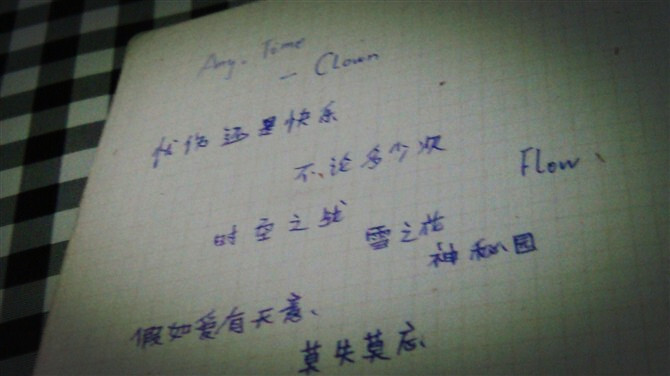 Any. Time
— Clown
忧伤还是快乐
不论多少次
Flow、
时空之城
雪之花
神秘园
假如爱有天意、
莫失莫忘、